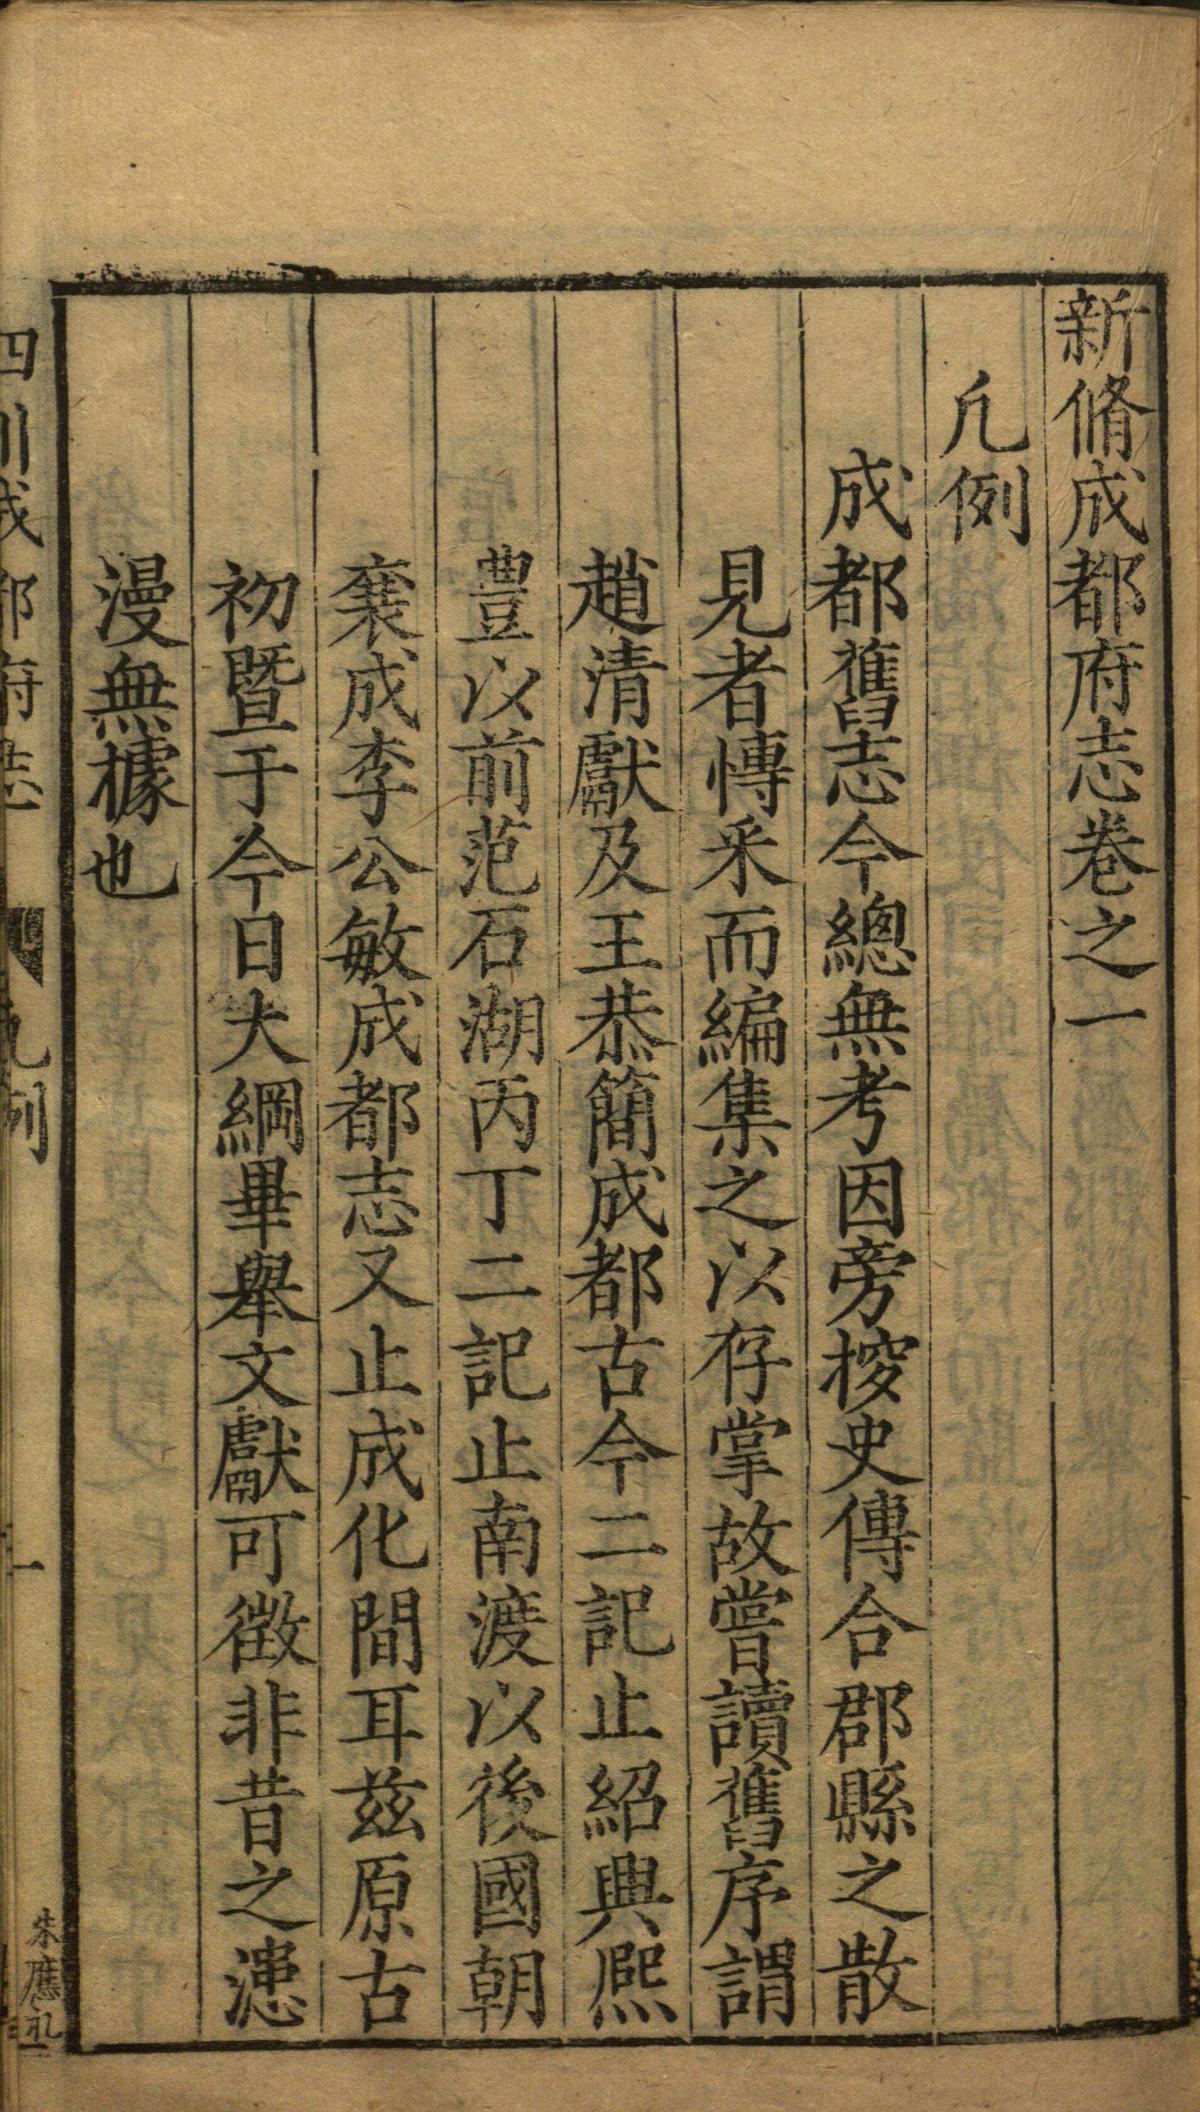 新脩成都府志卷之一
凡例
成都舊志今總無考因旁搜史傳合郡縣之散
見者愽采而編集之以存掌故嘗讀舊序謂
趙清獻及王恭簡成都古今二記止紹興熈
豊以前范石湖丙丁二記止南渡以後國朝
裒成李公敏成都志又止成化間耳兹原古
初暨于今日大綱畢舉文獻可徵非昔之漶
漫無據也
四川成都府志
凡例
一
朱應礼